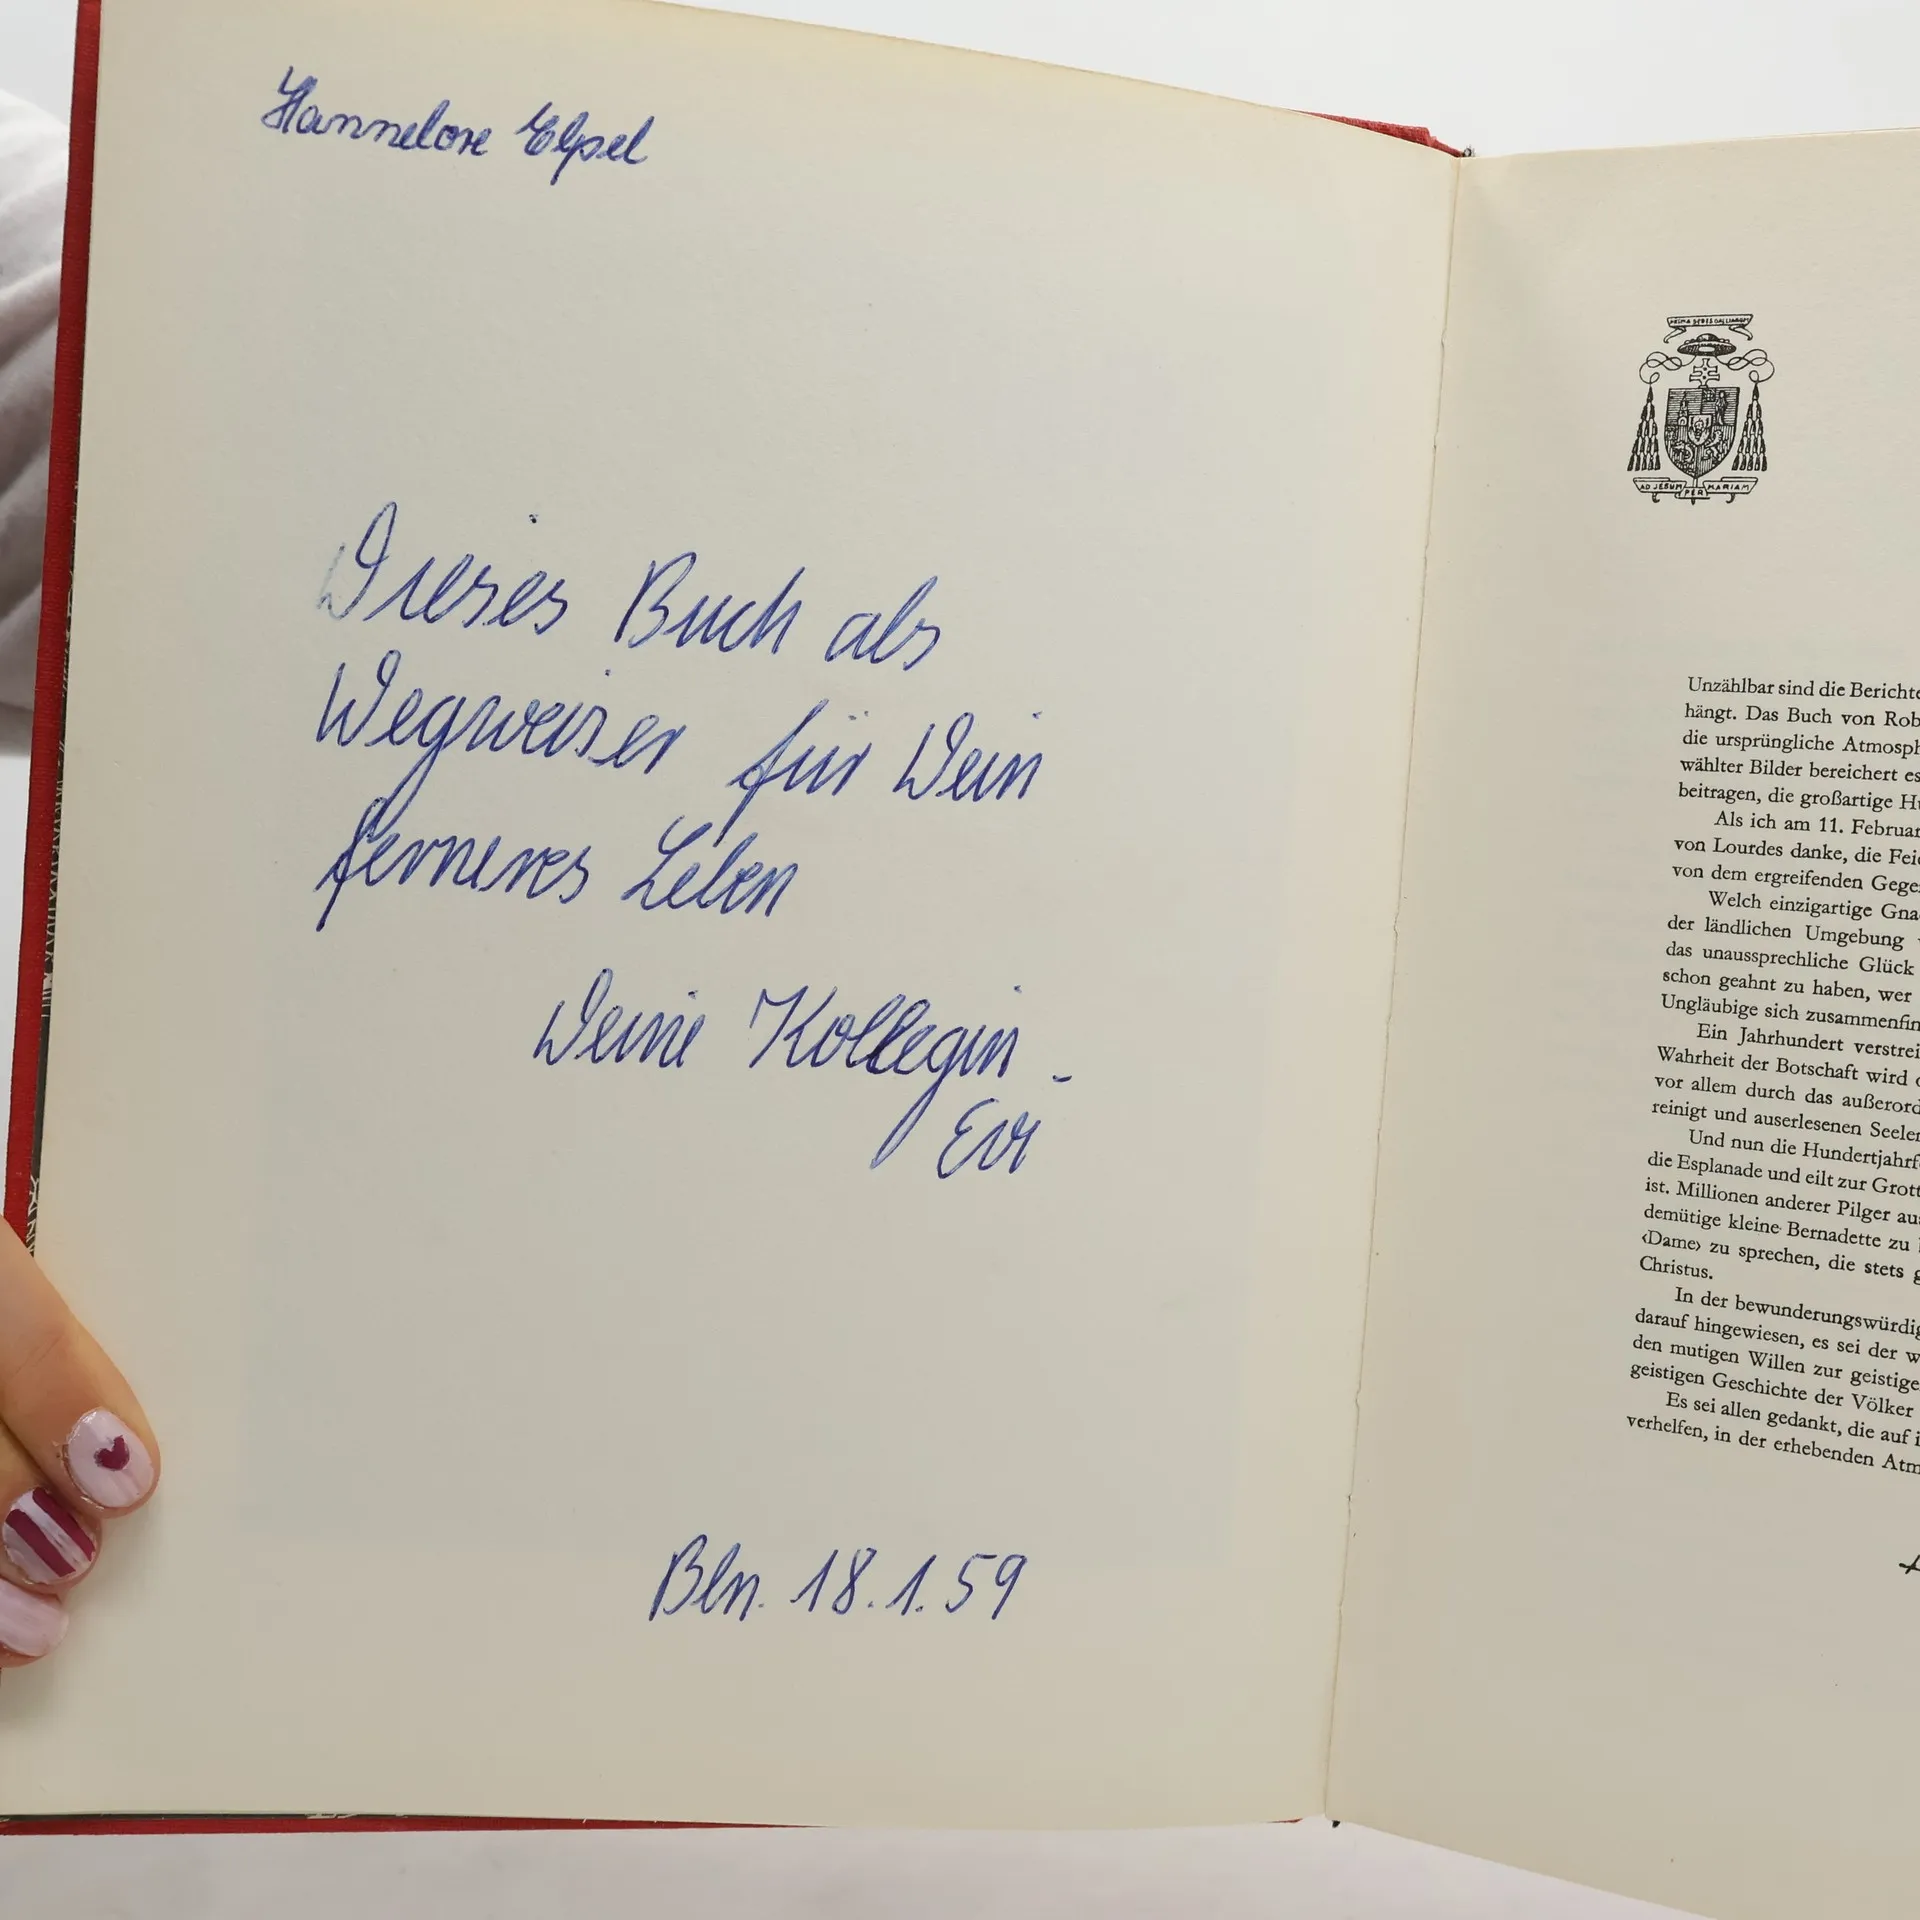 Hannelore Elpel
Dieses Buch als
Wegweiser für Dein
ferneres Leben
Deine Kollegin -
Evi
Bln. 18.1.59
PRIMA SEDES GALLIARUM
AD JESUM PER MARIAM
Unzählbar sind die Berichte
hängt. Das Buch von Rob
die ursprüngliche Atmosph
wählter Bilder bereichert es
beitragen, die großartige Hu
Als ich am 11. Februar
von Lourdes danke, die Feie
von dem ergreifenden Gege
Welch einzigartige Gna
der ländlichen Umgebung
das unaussprechliche Glück
schon geahnt zu haben, wer
Ungläubige sich zusammenfin
Ein Jahrhundert verstrei
Wahrheit der Botschaft wird
vor allem durch das außerord
reinigt und auserlesenen Seelen
Und nun die Hundertjahrf
die Esplanade und eilt zur Grott
ist. Millionen anderer Pilger aus
demütige kleine Bernadette zu
‹Dame› zu sprechen, die stets g
Christus.
In der bewunderungswürdig
darauf hingewiesen, es sei der w
den mutigen Willen zur geistige
geistigen Geschichte der Völker
Es sei allen gedankt, die auf i
verhelfen, in der erhebenden Atm